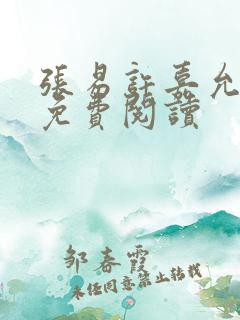 張易許嘉允
免費閱讀
邹春霞
未经同意禁止转载